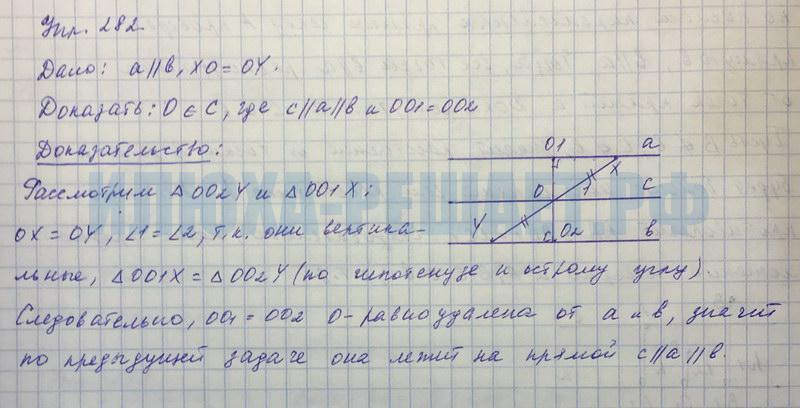 Упр. 282
Дано: a||b, XO = OY.
Доказать: O ∈ C, где c||a||b и OO1 = OO2
Доказательство:
Рассмотрим △OO2Y и △OO1X:
OX = OY, ∠1 = ∠2, т.к. они вертика-
льные, △OO1X = △OO2Y (по гипотенузе и острому углу).
Следовательно, OO1 = OO2 O - равноудалена от a и b, значит
по предыдущей задаче она лежит на прямой c||a||b.
O1 a
X
O 1 C
Y
O2 b
ИЛЮХАРЕШАЕТ.РФ